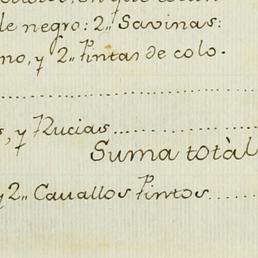 de negro: 2,, Savinas:
no, y 2,, Pintas de colo-
s, y Rucias
Suma totàl
y 2,, Cavallos Pintos